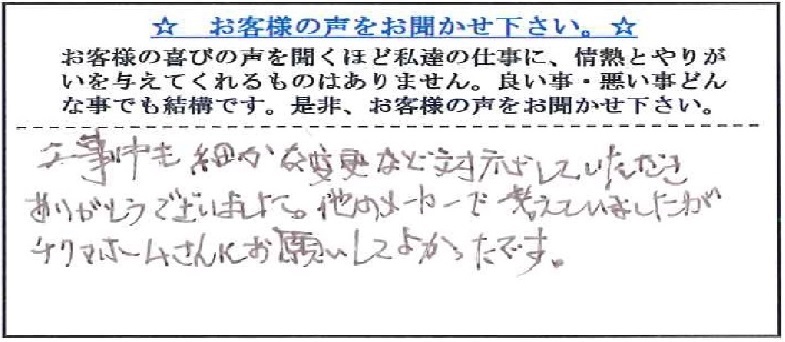 ☆ お客様の声をお聞かせ下さい。☆
お客様の喜びの声を聞くほど私達の仕事に、情熱とやりが
いを与えてくれるものはありません。良い事・悪い事どん
な事でも結構です。是非、お客様の声をお聞かせ下さい。
工事中も細かな変更など対応していただき
ありがとうございました。他のメーカーで考えていましたが
チクマホームさんにお願いしてよかったです。